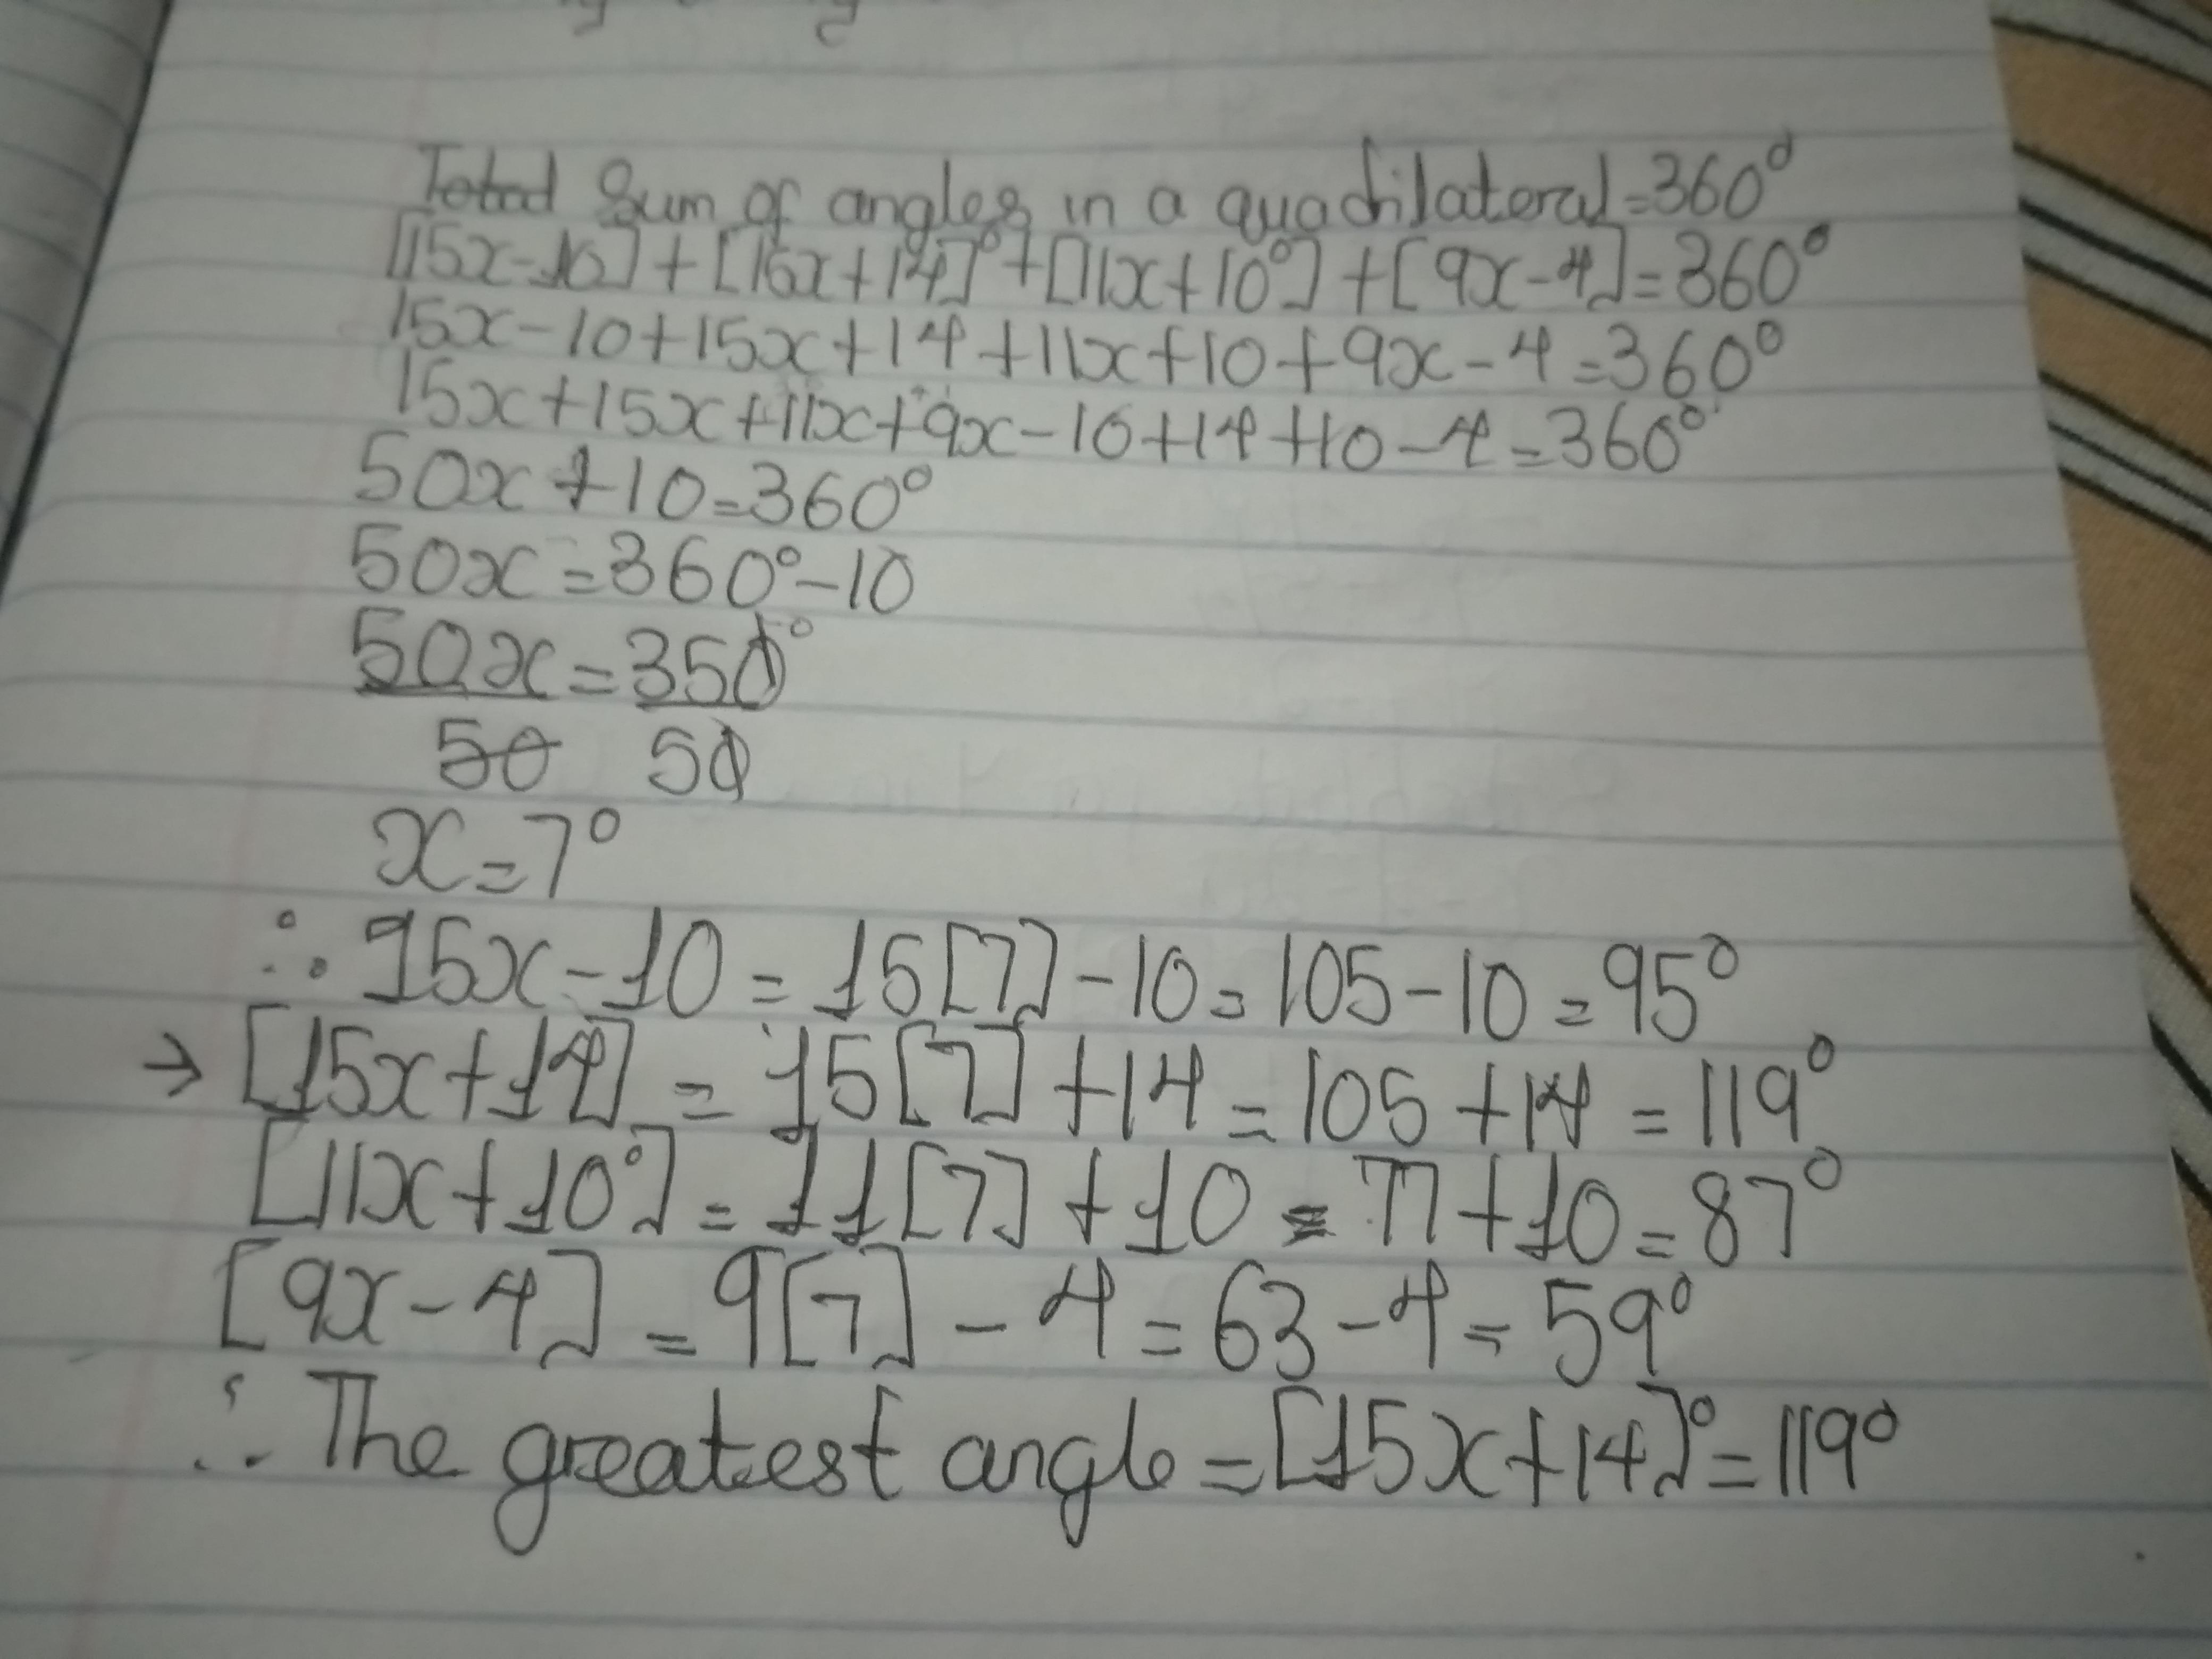 Total Sum of angles in a quadilateral=360°
[15x-10]+[15x+14]°+[11x+10°]+[9x-4]=360°
15x-10+15x+14+11x+10+9x-4=360°
15x+15x+11x+9x-10+14+10-4=360°
50x+10=360°
50x=360°-10
50x=350°
50 50
x=7°
∴ 15x-10=15[7]-10=105-10=95°
→ [15x+14]=15[7]+14=105+14=119°
[11x+10°]=11[7]+10=77+10=87°
[9x-4]=9[7]-4=63-4=59°
∴ The greatest angle=[15x+14]°=119°